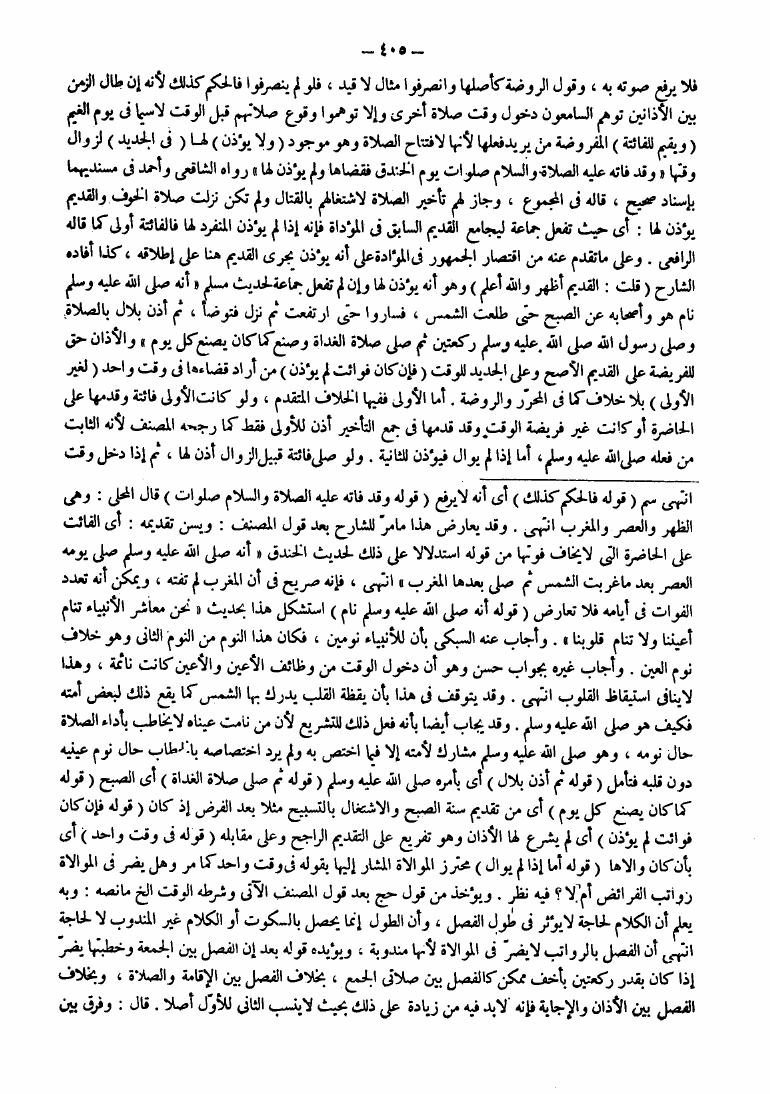 — ٤٠٥ —
فلا يرفع صوته به ، وقول الروضة كأصلها وانصرفوا مثال لا قيد ، فلو لم ينصرفوا فالحكم كذلك لأنه إن طال الزمن
بين الأذانين توهم السامعون دخول وقت صلاة أخرى وإلا توهموا وقوع صلاتهم قبل الوقت لاسيما فى يوم الغيم
( ويقيم للفائتة ) المفروضة من يريد فعلها لأنها لافتتاح الصلاة وهو موجود ( ولا يؤذن ) لها ( فى الجديد ) لزوال
وقتها « وقد فاته عليه الصلاة والسلام صلوات يوم الخندق فقضاها ولم يؤذن لها » رواه الشافعى وأحمد فى مسنديهما
بإسناد صحيح ، قاله فى المجموع ، وجاز لهم تأخير الصلاة لاشتغالهم بالقتال ولم تكن نزلت صلاة الخوف والقديم
يؤذن لها : أى حيث تفعل جماعة ليجامع القديم السابق فى المؤداة فإنه إذا لم يؤذن المنفرد لها فالفائتة أولى كما قاله
الرافعى . وعلى ماتقدم عنه من اقتصار الجمهور فى المؤادة على أنه يؤذن يجرى القديم هنا على إطلاقه ، كذا أفاده
الشارح ( قلت : القديم أظهر والله أعلم ) وهو أنه يؤذن لها وإن لم تفعل جماعة لحديث مسلم « أنه صلى الله عليه وسلم
نام هو وأصحابه عن الصبح حتى طلعت الشمس ، فساروا حتى ارتفعت ثم نزل فتوضأ ، ثم أذن بلال بالصلاة
وصلى رسول الله صلى الله عليه وسلم ركعتين ثم صلى صلاة الغداة وصنع كما كان يصنع كل يوم » والأذان حق
للفريضة على القديم الأصح وعلى الجديد للوقت ( فإن كان فوائت لم يؤذن ) من أراد قضاءها فى وقت واحد ( لغير
الأولى ) بلا خلاف كما فى المحرّر والروضة . أما الأولى ففيها الخلاف المتقدم ، ولو كانت الأولى فائتة وقدمها على
الحاضرة أو كانت غير فريضة الوقت وقد قدمها فى جمع التأخير أذن للأولى فقط كما رجحه المصنف لأنه الثابت
من فعله صلى الله عليه وسلم، أما إذا لم يوال فيؤذن للثانية . ولو صلى فائتة قبيل الزوال أذن لها ، ثم إذا دخل وقت
انتهى سم ( قوله فالحكم كذلك ) أى أنه لايرفع ( قوله وقد فاته عليه الصلاة والسلام صلوات ) قال المحلى : وهى
الظهر والعصر والمغرب انتهى . وقد يعارض هذا مامرّ للشارح بعد قول المصنف : ويسن تقديمه : أى الفائت
على الحاضرة التى لايخاف فوتها من قوله استدلالا على ذلك لحديث الخندق « أنه صلى الله عليه وسلم صلى يومه
العصر بعد ماغربت الشمس ثم صلى بعدها المغرب » انتهى ، فإنه صريح فى أن المغرب لم تفته ، ويمكن أنه تعدد
الفوات فى أيامه فلا تعارض ( قوله أنه صلى الله عليه وسلم نام ) استشكل هذا بحديث « نحن معاشر الأنبياء تنام
أعيننا ولا تنام قلوبنا » . وأجاب عنه السبكى بأن للأنبياء نومين ، فكان هذا النوم من النوم الثانى وهو خلاف
نوم العين . وأجاب غيره بجواب حسن وهو أن دخول الوقت من وظائف الأعين والأعين كانت نائمة ، وهذا
لاينافى استيقاظ القلوب انتهى . وقد يتوقف فى هذا بأن يقظة القلب يدرك بها الشمس كما يقع ذلك لبعض أمته
فكيف هو صلى الله عليه وسلم . وقد يجاب أيضا بأنه فعل ذلك للتشريع لأن من نامت عيناه لايخاطب بأداء الصلاة
حال نومه ، وهو صلى الله عليه وسلم مشارك لأمته إلا فيما اختص به ولم يرد اختصاصه بالخطاب حال نوم عينيه
دون قلبه فتأمل ( قوله ثم أذن بلال ) أى بأمره صلى الله عليه وسلم ( قوله ثم صلى صلاة الغداة ) أى الصبح ( قوله
كما كان يصنع كل يوم ) أى من تقديم سنة الصبح والاشتغال بالتسبيح مثلا بعد الفرض إذ كان ( قوله فإن كان
فوائت لم يؤذن ) أى لم يشرع لها الأذان وهو تفريع على التقديم الراجح وعلى مقابله ( قوله فى وقت واحد ) أى
بأن كان والاها ( قوله أما إذا لم يوال ) محترز الموالاة المشار إليها بقوله فى وقت واحد كما مر وهل يضر فى الموالاة
رواتب الفرائض أم لا ؟ فيه نظر . ويؤخذ من قول حج بعد قول المصنف الآتى وشرطه الوقت الخ مانصه : وبه
يعلم أن الكلام لحاجة لايؤثر فى طول الفصل ، وأن الطول إنما يحصل بالسكوت أو الكلام غير المندوب لا لحاجة
انتهى أن الفصل بالرواتب لايضرّ فى الموالاة لأنها مندوبة ، ويؤيده قوله بعد إن الفصل بين الجمعة وخطبتها يضرّ
إذا كان بقدر ركعتين بأخف ممكن كالفصل بين صلاتى الجمع ، بخلاف الفصل بين الإقامة والصلاة ، وبخلاف
الفصل بين الأذان والإجابة فإنه لابد فيه من زيادة على ذلك بحيث لاينسب الثانى للأوّل أصلا . قال : وفرق بين